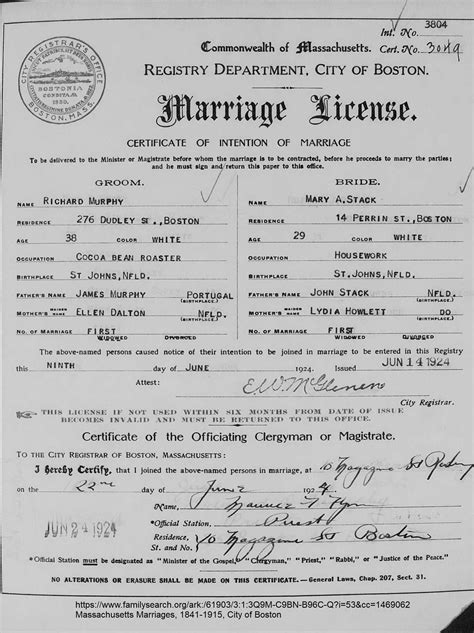 3804
Int. No.
Commonwealth of Massachusetts. Cert. No. 3049
CITY REGISTRAR'S OFFICE
BOSTONIA
CONDITA A.D.
1630.
BOSTON, MASS.
REGISTRY DEPARTMENT, CITY OF BOSTON.
Marriage License.
CERTIFICATE OF INTENTION OF MARRIAGE
To be delivered to the Minister or Magistrate before whom the marriage is to be contracted, before he proceeds to marry the parties;
and he must sign and return this paper to this office.
GROOM.
NAME RICHARD MURPHY
RESIDENCE 276 DUDLEY ST., BOSTON
AGE 38 COLOR WHITE
OCCUPATION COCOA BEAN ROASTER
BIRTHPLACE ST JOHNS, NFLD.
FATHER'S NAME JAMES MURPHY PORTUGAL
(BIRTHPLACE.)
MOTHER'S MAIDEN NAME ELLEN DALTON NFLD.
(BIRTHPLACE.)
NO. OF MARRIAGE FIRST
WIDOWED DIVORCED
BRIDE.
NAME MARY A. STACK
RESIDENCE 14 PERRIN ST., BOSTON
AGE 29 COLOR WHITE
OCCUPATION HOUSEWORK
BIRTHPLACE ST. JOHNS, NFLD.
FATHER'S NAME JOHN STACK NFLD.
(BIRTHPLACE.)
MOTHER'S MAIDEN NAME LYDIA HOWLETT DO
(BIRTHPLACE.)
NO. OF MARRIAGE FIRST
WIDOWED DIVORCED
The above-named persons caused notice of their intention to be joined in marriage to be entered in this Registry
this NINTH day of JUNE 1924. Issued JUN 14 1924
Attest:
City Registrar.
THIS LICENSE IF NOT USED WITHIN SIX MONTHS FROM DATE OF ISSUE
BECOMES INVALID AND MUST BE RETURNED TO THIS OFFICE.
Certificate of the Officiating Clergyman or Magistrate.
TO THE CITY REGISTRAR OF BOSTON, MASSACHUSETTS:
I hereby Certify, that I joined the above-named persons in marriage, at 10 Magazine St
on the 22nd day of June 1924
Name,
JUN 24 1924
*Official Station, Priest
Residence, St. and No. } 10 Magazine St Boston
*Official Station must be designated as "Minister of the Gospel," "Clergyman," "Priest," "Rabbi," or "Justice of the Peace."
NO ALTERATIONS OR ERASURE SHALL BE MADE ON THIS CERTIFICATE.—General Laws, Chap. 207, Sect. 31.
https://www.familysearch.org/ark:/61903/3:1:3Q9M-C9BN-B96C-Q?i=53&cc=1469062
Massachusetts Marriages, 1841-1915, City of Boston